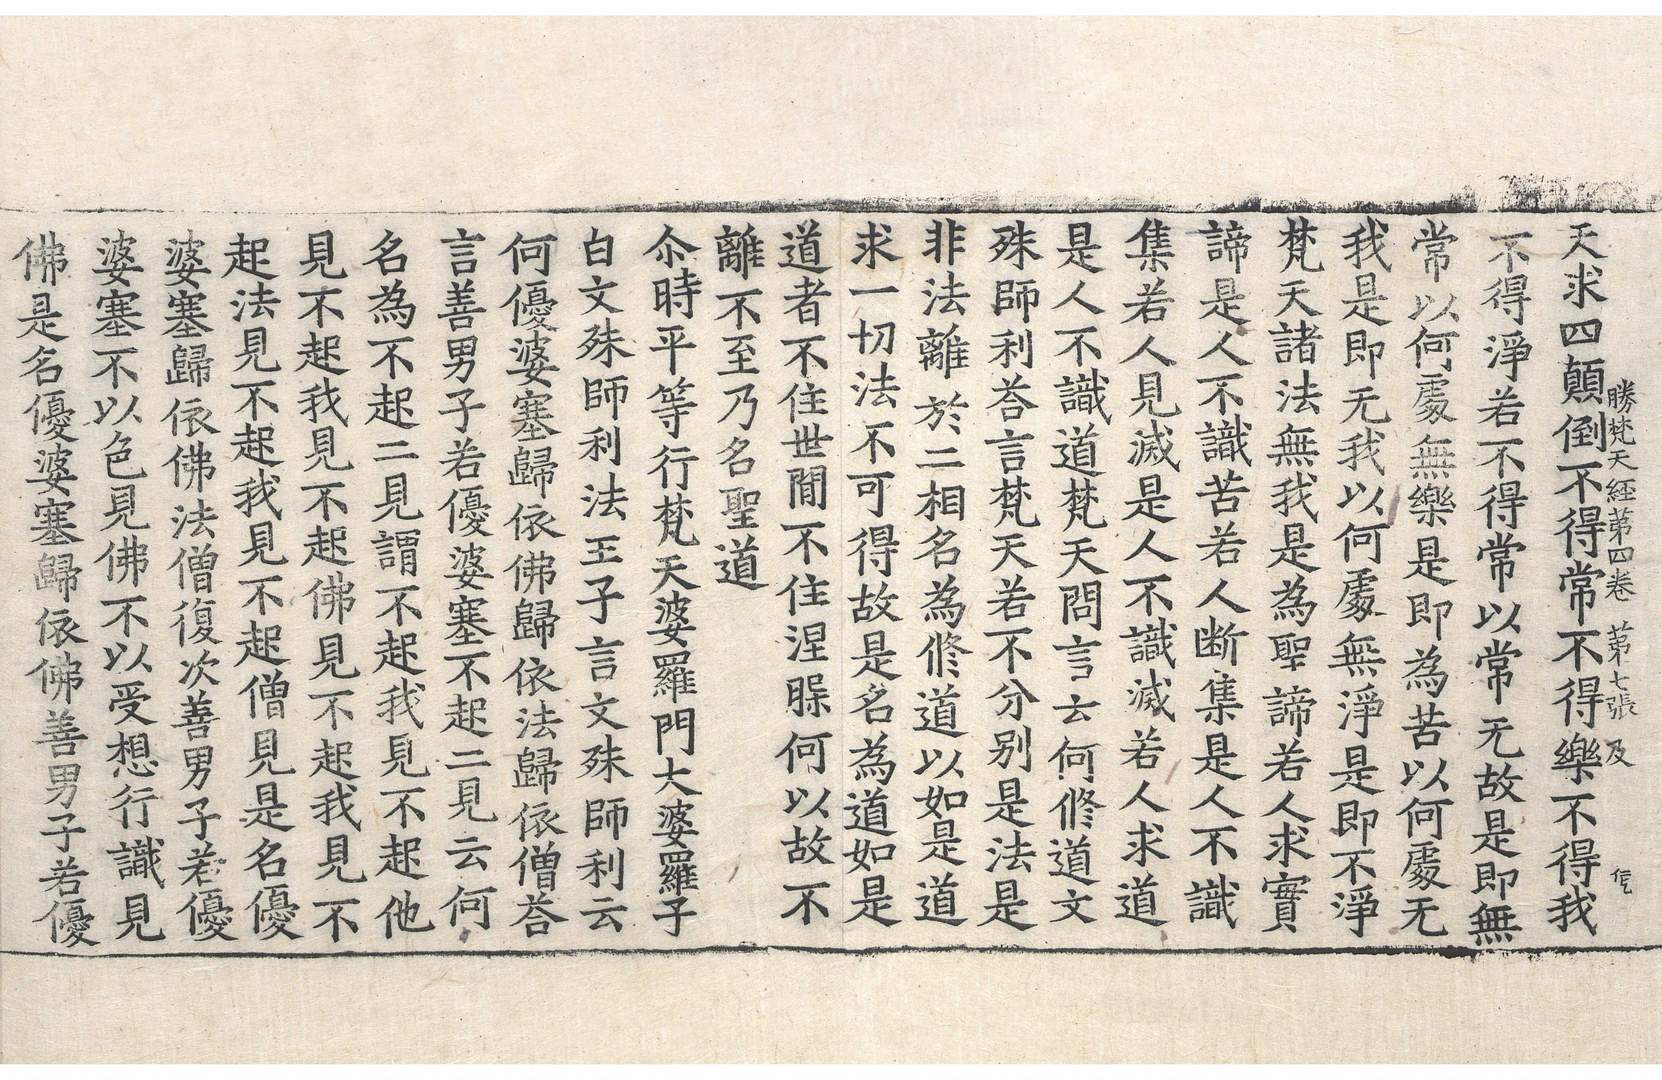 勝梵天經第四卷　第七張　及
天求四顛倒不得常不得樂不得我
不得淨若不得常以常无故是即無
常以何處無樂是即為苦以何處无
我是即无我以何處無淨是即不淨
梵天諸法無我是為聖諦若人求實
諦是人不識苦若人断集是人不識
集若人見滅是人不識滅若人求道
是人不識道梵天問言云何修道文
殊師利荅言梵天若不分别是法是
非法離於二相名為修道以如是道
求一切法不可得故是名為道如是
道者不住世間不住涅槃何以故不
離不至乃名聖道
尒時平等行梵天婆羅門大婆羅子
白文殊師利法王子言文殊師利云
何優婆塞歸依佛歸依法歸依僧荅
言善男子若優婆塞不起二見云何
名為不起二見謂不起我見不起他
見不起我見不起佛見不起我見不
起法見不起我見不起僧見是名優
婆塞歸依佛法僧復次善男子若優
婆塞不以色見佛不以受想行識見
佛是名優婆塞歸依佛善男子若優